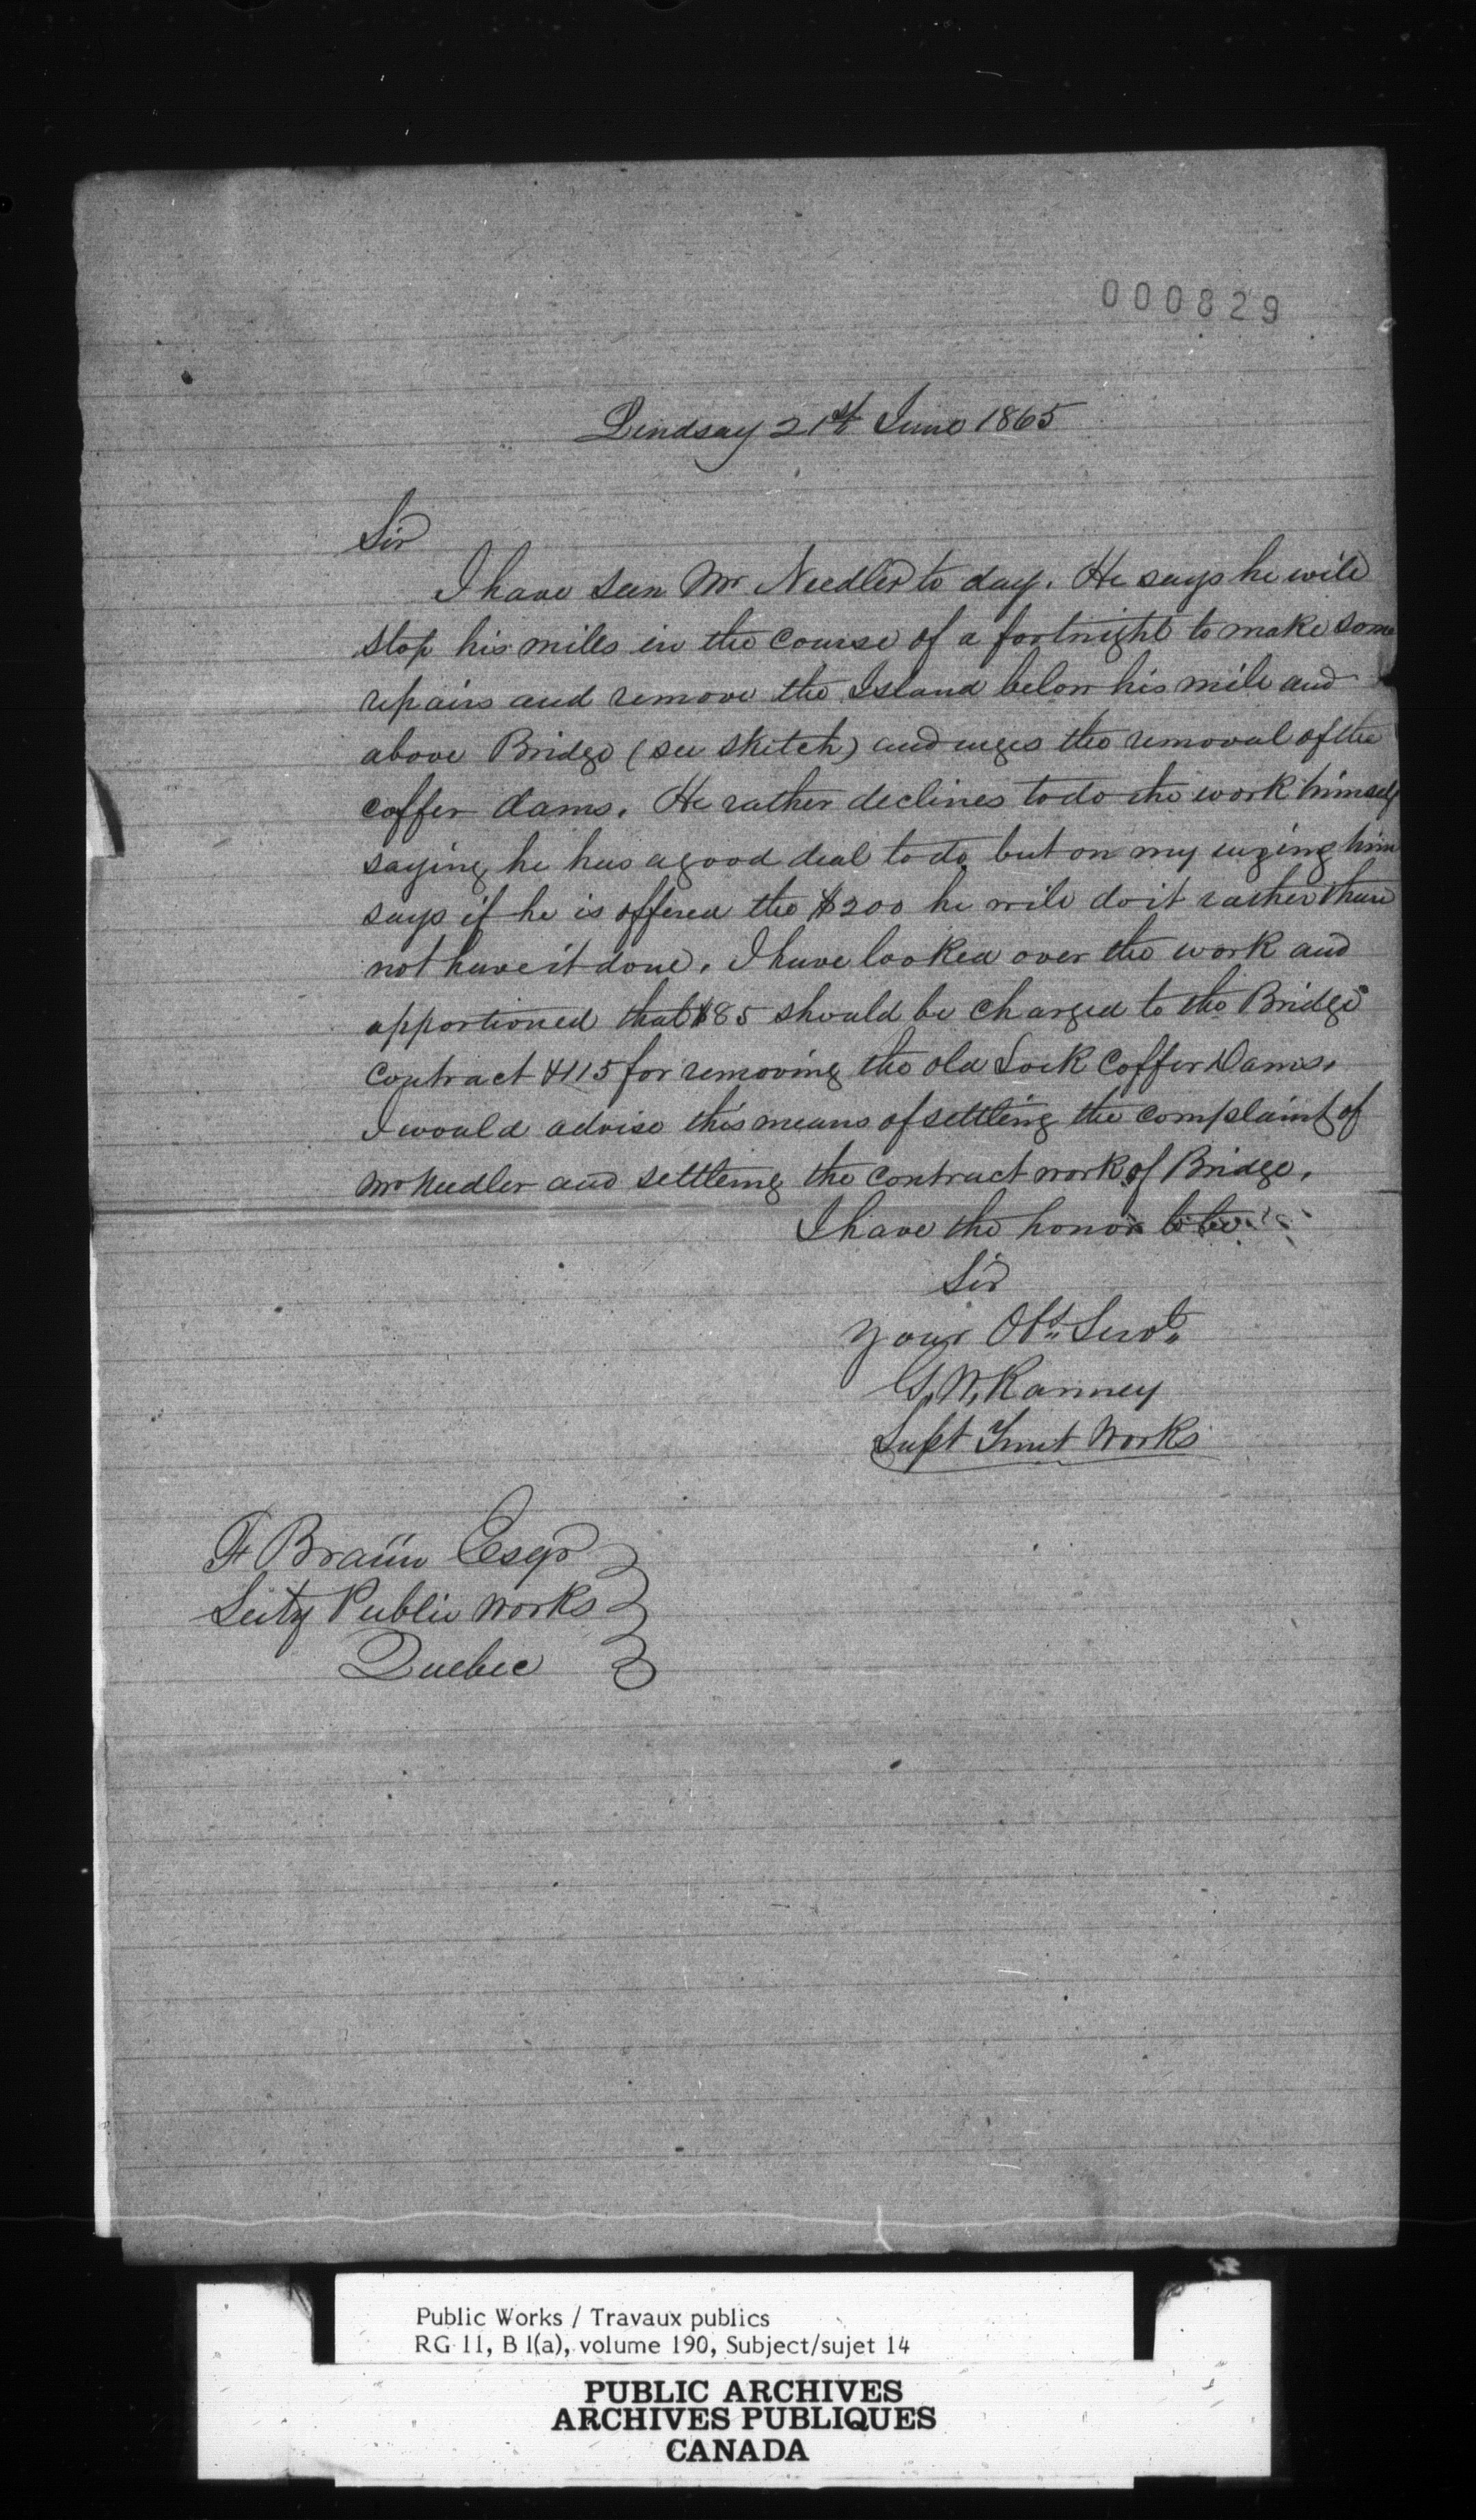 000829
Lindsay 21st June 1865
Sir
I have seen Mr Needler to day. He says he will
stop his mills in the course of a fortnight to make some
repairs and remove the Island below his mill and
above Bridge (see sketch) and urges the removal of the
coffer dams. He rather declines to do the work himself
saying he has a good deal to do but on my urging him
says if he is offered the $200 he will do it rather than
not have it done. I have looked over the work and
apportioned that $85 should be charged to the Bridge
contract $115 for removing the old Lock Coffer Dams.
I would advise this means of settling the complaint of
Mr Needler and settling the contract work of Bridge.
I have the honor to be
Sir
your Obt. Servt.
G. W. Ranney
Supt Trent Works
F Braün Esqr
Secty Public Works
Quebec
Public Works / Travaux publics
RG 11, B 1(a), volume 190, Subject/sujet 14
PUBLIC ARCHIVES
ARCHIVES PUBLIQUES
CANADA